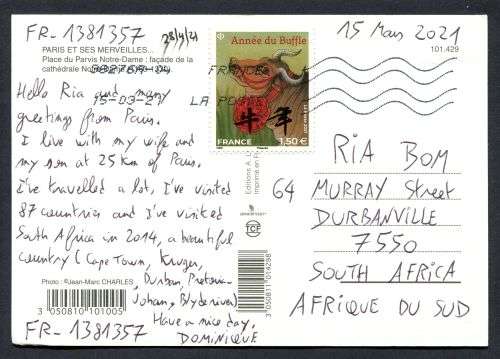 FR-1381357
28/4/21
PARIS ET SES MERVEILLES...
Place du Parvis Notre-Dame : façade de la
cathédrale
15-03-21
Hello Ria and many
greetings from Paris.
I live with my wife and
my son at 25 km of Paris.
I've travelled a lot, I've visited
87 countries and I've visited
South Africa in 2014, a beautiful
country (Cape Town, Kruger,
Durban, Pretoria-
Johann, Blyde river)
Have a nice day,
DOMINIQUE
Photo : Jean-Marc CHARLES
3 050810 101005
FR-1381357
Année du Buffle
FRANCE
LA POSTE
牛年
FRANCE
1,50 €
Editions A.
Imprimé en
TCF
3 050811 014298
15 Mars 2021
101.429
RIA BOM
64 MURRAY Street
DURBANVILLE
7550
SOUTH AFRICA
AFRIQUE DU SUD